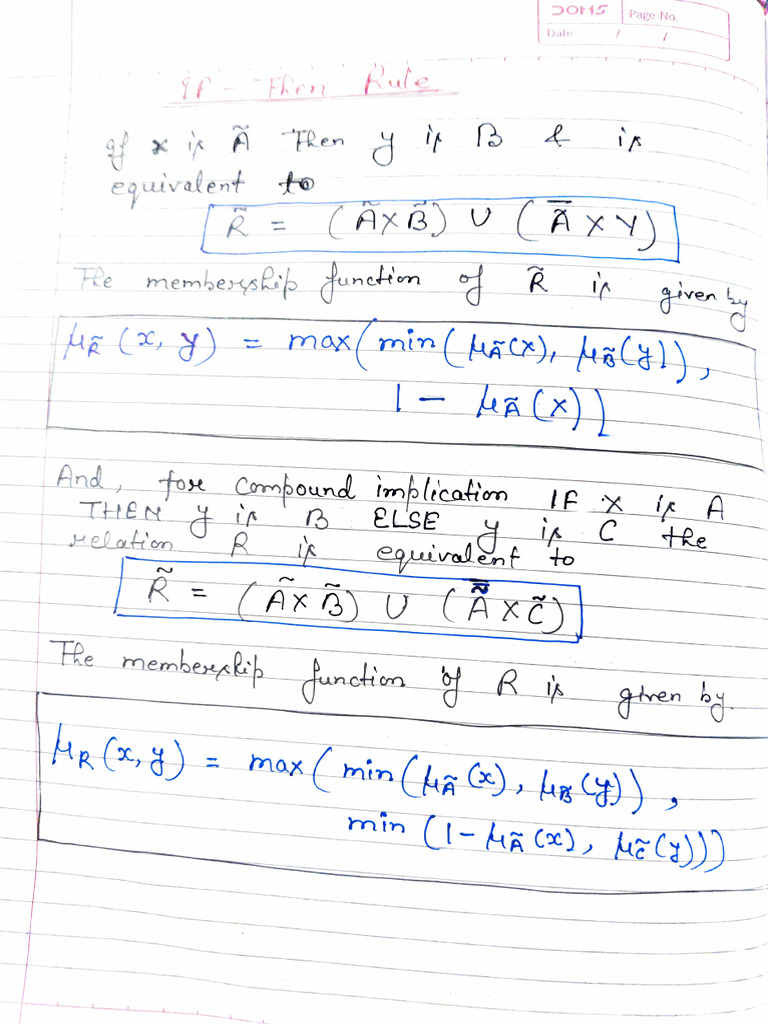 DOMS
Page No.
Date / /
If - Then Rule
If x is Ã Then y is B & is
equivalent to
R̃ = (Ã X B̃) ∪ (Ã̅ X Y)
The membership function of R̃ is given by
μ_R̃ (x, y) = max(min(μ_Ã(x), μ_B̃(y)),
1 - μ_Ã(x))
And, for compound implication IF X is A
THEN y is B ELSE y is C the
relation R is equivalent to
R̃ = (Ã X B̃) ∪ (Ã̅ X C̃)
The membership function of R is given by.
μ_R (x, y) = max(min(μ_Ã(x), μ_B̃(y)),
min (1 - μ_Ã(x), μ_C̃(y)))